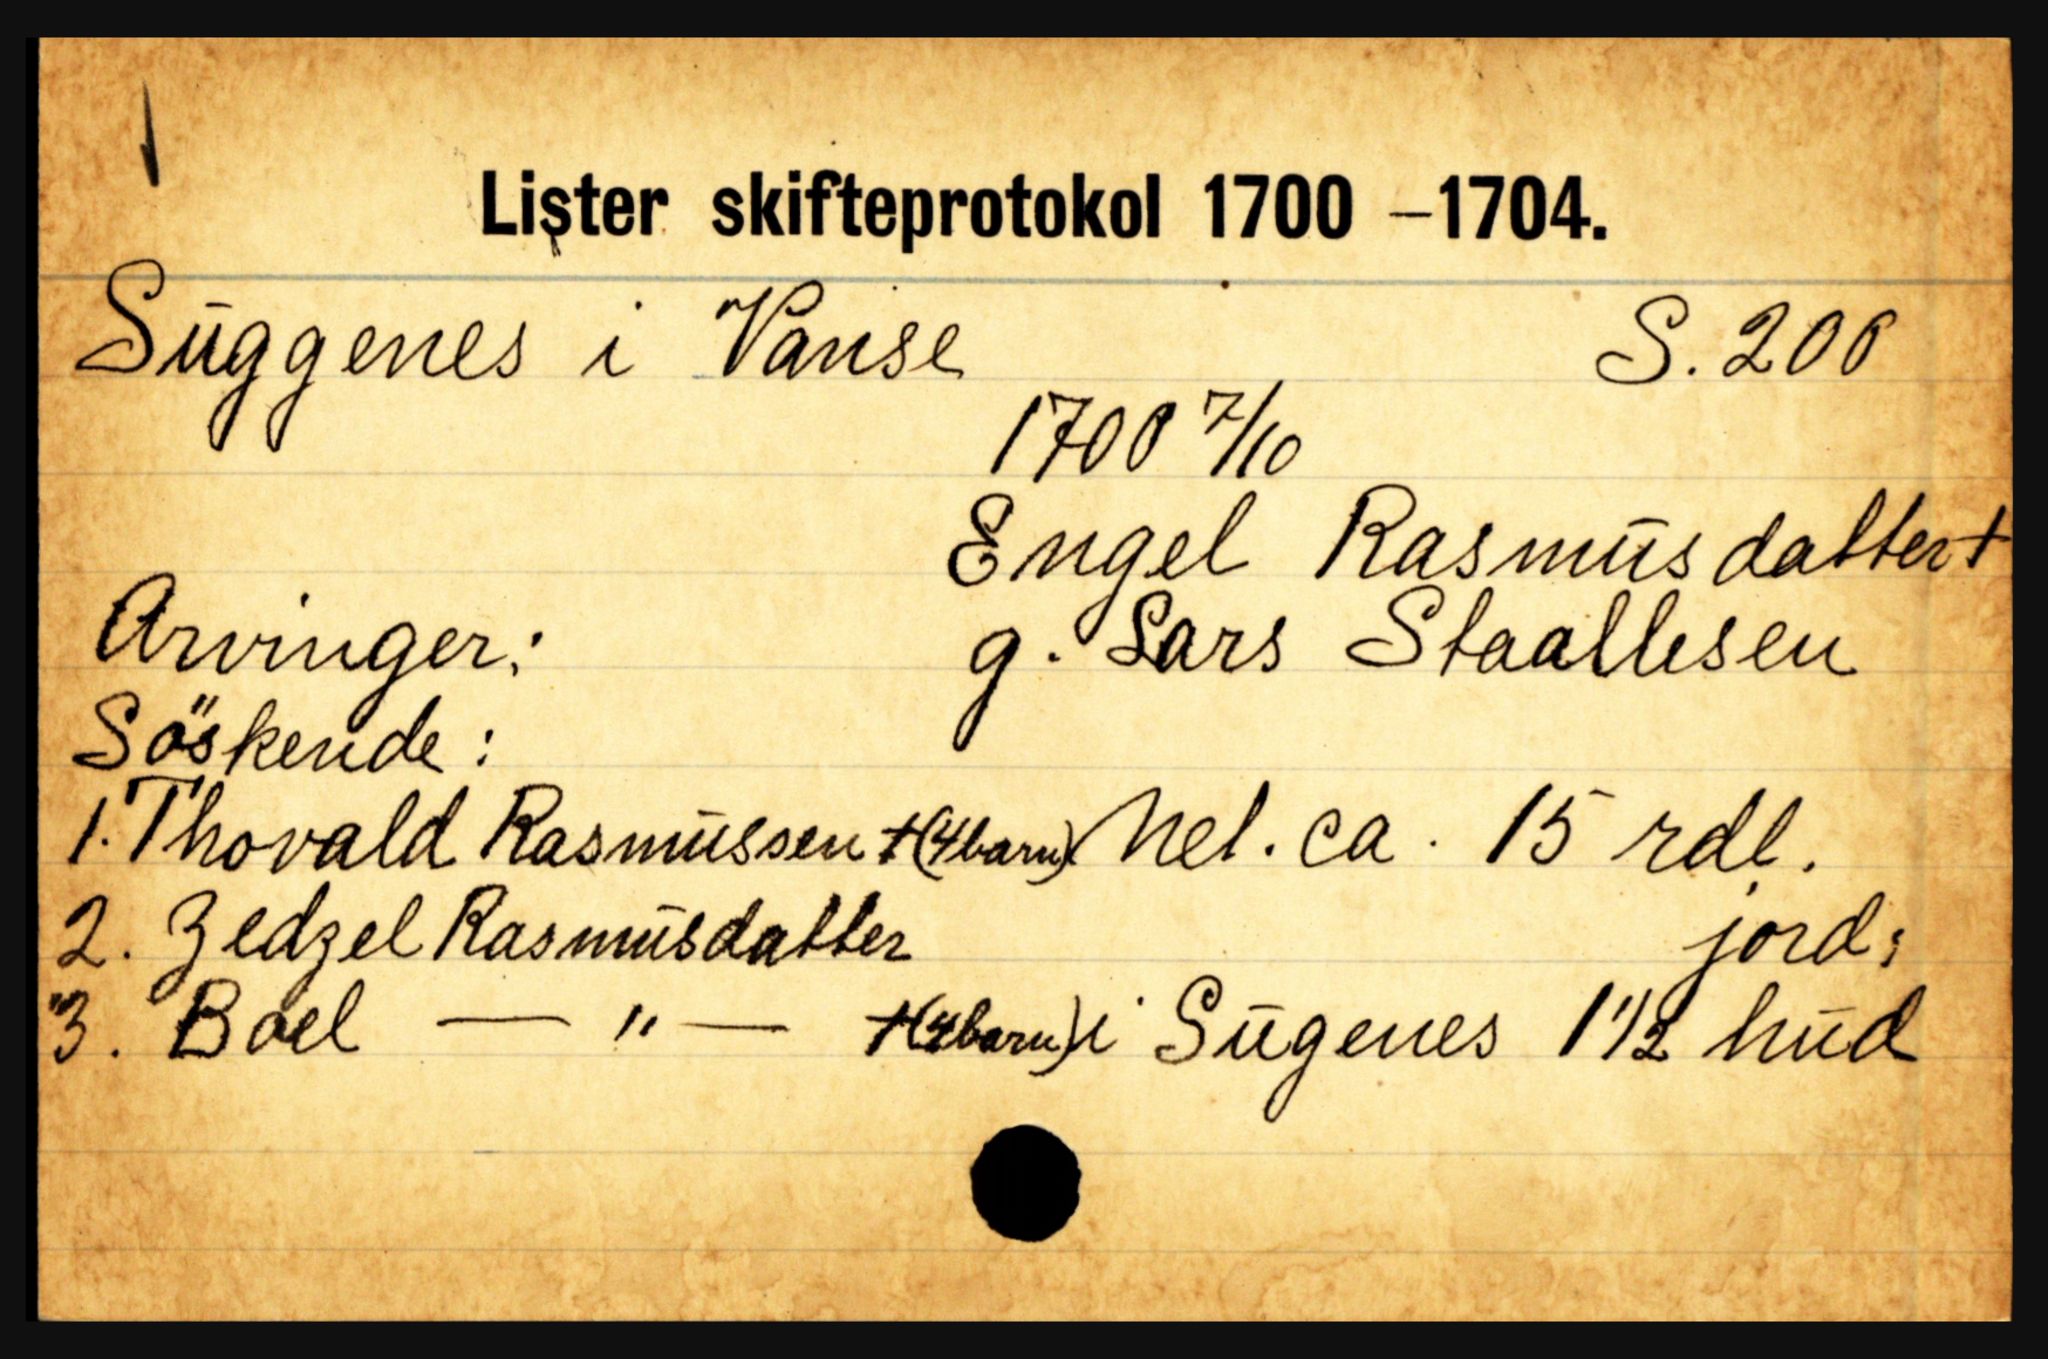 Lister skifteprotokol 1700 –1704.
Suggenes i Vanse S. 200
1700 7/10
Engel Rasmusdatter +
Arvinger: g. Lars Staallesen
Söskende:
1. Thovald Rasmussen + (4 barn) Nel. ca. 15 rdl.
2. Zedzel Rasmusdatter jord:
3. Boel — " — + (4 barn) i Sugenes 1 1/2 hud